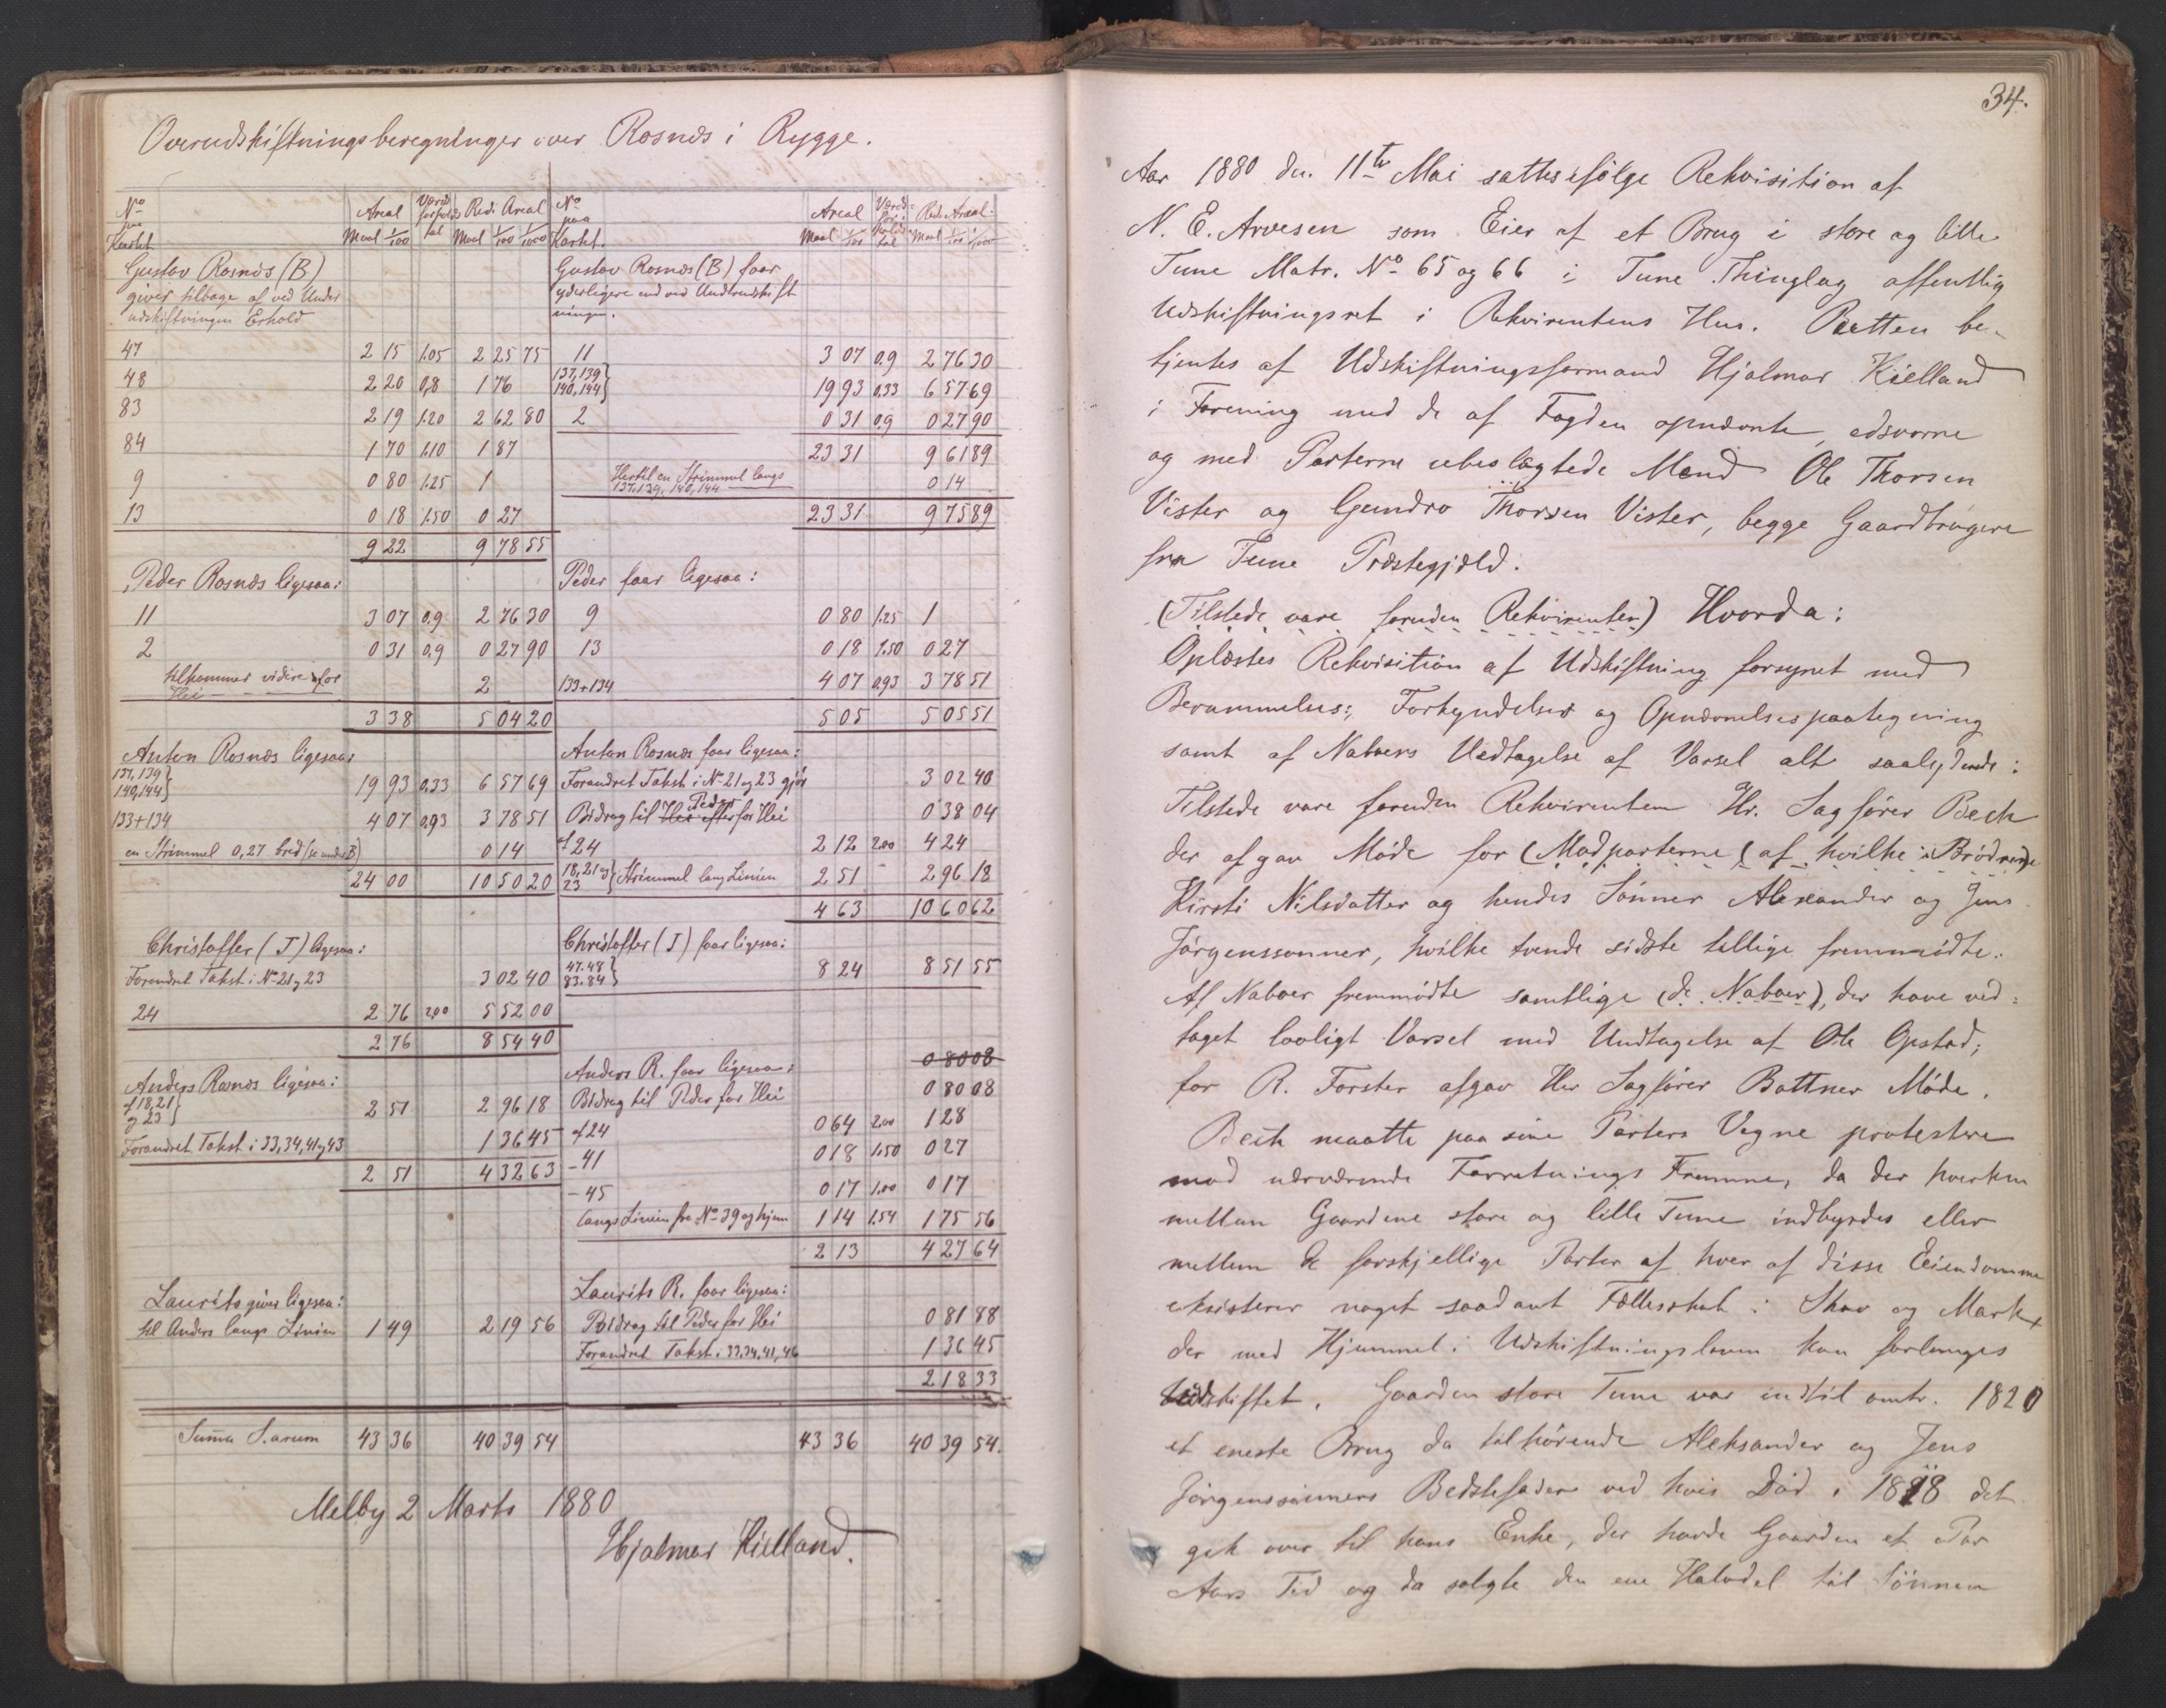 Overudskiftningsberegninger over Rosnæs i Rygge.
No paa Kartet | Areal Maal 1/100 | Værdiforholdstal | Red. Areal Maal 1/100 1/1000 | No paa Kartet. | Areal Maal 1/100 | Værdiforholdstal | Red. Areal: Maal 1/100 1/1000
Gustav Rosnæs (B)
giver tilbage af ved Under
udskiftningen Erholdt
47 2 15 1.05 2 25 75
48 2 20 0,8 1 76
83 2 19 1.20 2 62 80
84 1 70 1.10 1 87
9 0 80 1.25 1
13 0 18 1.50 0 27
9 22 9 78 55
Peder Rosnæs ligesaa:
11 3 07 0.9 2 76 30
2 0 31 0.9 0 27 90
tilkommer videre for
Hei 2
3 38 5 04 20
Anton Rosnæs ligesaa:
137, 139 } 140, 144 } 19 93 0,33 6 57 69
133+134 4 07 0,93 3 78 51
en Strimmel 0,27 bred (se under B) 0 14
24 00 10 50 20
Christoffer (J) ligesaa:
Forandret Takst i No 21 og 23 3 02 40
24 2 76 2,00 5 52 00
2 76 8 54 40
Anders Rosnæs ligesaa:
af 18, 21 } og 23 } 2 51 2 96 18
Forandret Takst i 33, 34, 41 og 43 1 36 45
2 51 4 32 63
Laurits giver ligesaa:
til Anders langs Linien 1 49 2 19 56
Summa S.arum 43 36 40 39 54
Gustav Rosnæs (B) faar
yderligere end ved Underudskift
ningen.
11 3 07 0.9 2 76 30
137, 139 } 140, 144 } 19 93 0,33 6 57 69
2 0 31 0.9 0 27 90
23 31 9 61 89
Hertil en Strimmel langs
137, 139, 140, 144 0 14
23 31 9 75 89
Peder faar ligesaa:
9 0 80 1.25 1
13 0 18 1.50 0 27
133+134 4 07 0.93 3 78 51
5 05 5 05 51
Anton Rosnæs faar ligesaa:
Forandret Takst i No 21 og 23 gjør 3 02 40
Bidrag til Peder for Hei 0 38 04
af 24 2 12 2.00 4 24
18, 21 og } 23 } Strimmel lang Linien 2 51 - 2 96 18
4 63 10 60 62
Christoffer (J) faar ligesaa:
47. 48 } 83. 84 } 8 24 8 51 55
Anders R. faar ligesaa: 0 80 08
Bidrag til Peder for Hei 0 80 08
af 24 0 64 2.00 1 28
- 41 0 18 1.50 0 27
- 45 0 17 1.00 0 17
langs Linien fra No 39 og hjem 1 14 1.54 1 75 56
2 13 4 27 64
Laurits R. faar ligesaa:
Bidrag til Peder for Hei 0 81 88
Forandret Takst i 33, 34, 41, 46 1 36 45
2 18 33
43 36 40 39 54.
Melby 2 Marts 1880
Hjalmar Kielland.
34.
Aar 1880 den 11te Mai sattes ifølge Rekvisition af
N. E. Arvesen som Eier af et Brug i store og lille
Tune Matr. No 65 og 66 i Tune Thinglag offentlig
Udskiftningsret i Rekvirentens Hus. Retten be-
tjentes af Udskiftningsformand Hjalmar Kielland
i Forening med de af Fogden opnævnte, edsvorne
og med Parterne ubeslægtede Mænd Ole Thorsen
Vister og Gundro Thorsen Vister, begge Gaardbrugere
fra Tune Præstegjæld.
(Tilstede vare foruden Rekvirenten) Hvorda:
Oplæstes Rekvisition af Udskiftning forsynet med
Berammelses:, Forkyndelses og Opnævnelsespaategning
samt af Naboers Vedtagelse af Varsel alt saalydende:
Tilstede vare foruden Rekvirenten Hr. Sagfører Beck
der afgav Møde for (Modparterne (af hvilke i Brødrene
Kirsti Nilsdatter og hendes Sønner Alexander og Jens
Jørgenssønner, hvilke tvende sidste tillige fremmødte.
Af Naboer fremmødte samtlige (de Naboer), der have ved=
taget lovligt Varsel med Undtagelse af Ole Opstad;
for R. Forster afgav Hr Sagfører Bøttner Møde.
Beck maatte paa sine Parters Vegne protestere
mod nærværende Forretnings Fremme, da der hverken
mellem Gaardene store og lille Tune indbyrdes eller
mellem de forskjellige Parter af hver af disse Eiendomme
eksisterer noget saadant Fællesskab i Skov og Mark,
der med Hjemmel i Udskiftningsloven kan forlanges
Udskiftet. Gaarden store Tune var indtil omtr. 1820
et eneste Brug da tilhørende Aleksander og Jens
Jørgenssønners Bedstefader ved hvis Død i 1818 det
gik over til hans Enke, der havde Gaarden et Par
Aars Tid og da solgte den ene Halvdel til Sønnen